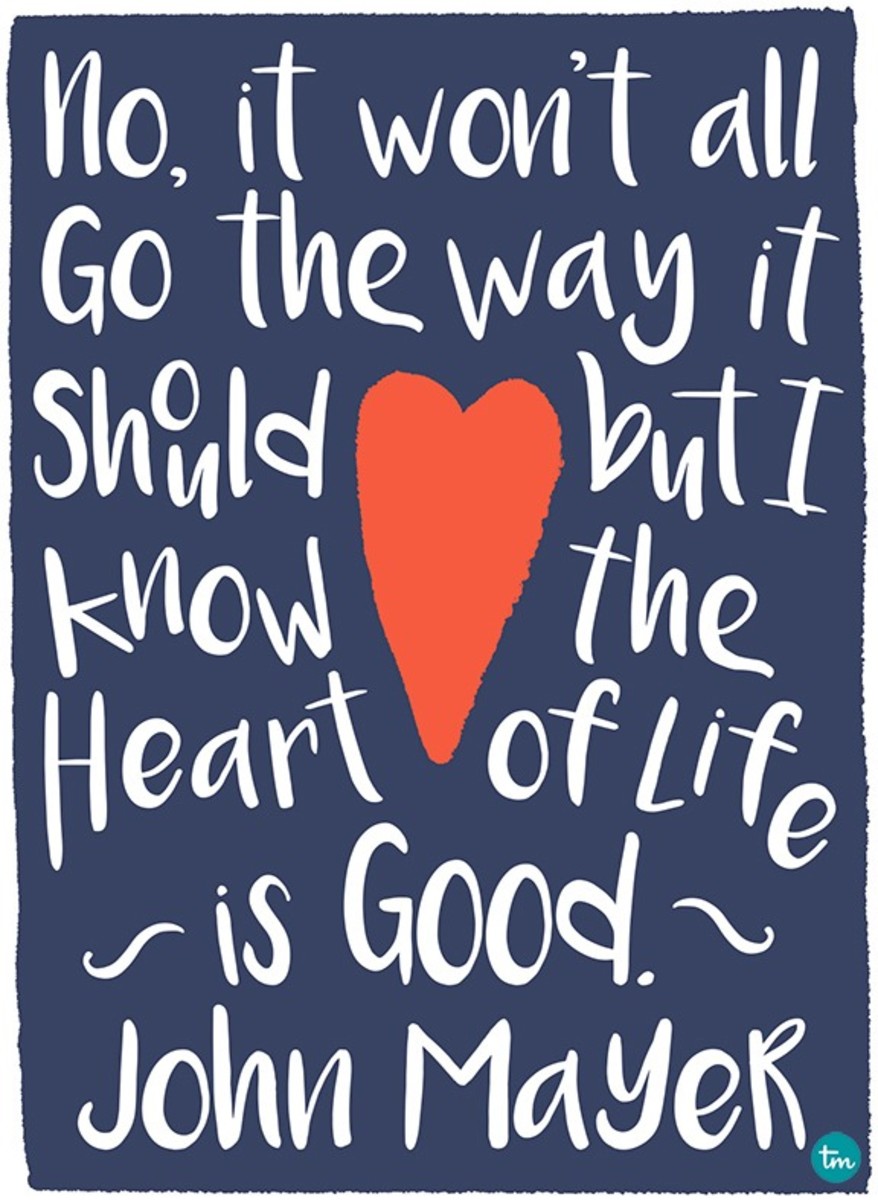 No, it won't all
Go the way it
Should but I
know the
Heart of Life
is Good.
John Mayer
tm